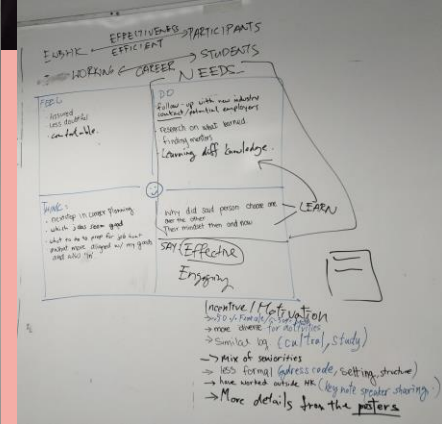 EFFECTIVENESS PARTICIPANTS
EFFICIENT
STUDENTS
WORKING CAREER
NEEDS
FEEL
Assured
less doubtful
comfortable.
DO
follow-up with new industry
contract/potential employers
research on what learned
finding mentors
Learning diff knowledge.
THINK:
next step in career planning
which jobs seem good
what to do to prep for job hunt
what more aligned w/ my goals
and also
why did said person choose one
over the other
Their mindset then and now
LEARN
SAY Effective
Engaging
Incentive/Motivation
→ more diverse for activities
→ Similar bg (cultral, study)
→ Mix of seniorities
→ less formal (dress code, setting, structure)
→ have worked outside HK (key note speaker sharing.)
→ More details from the posters